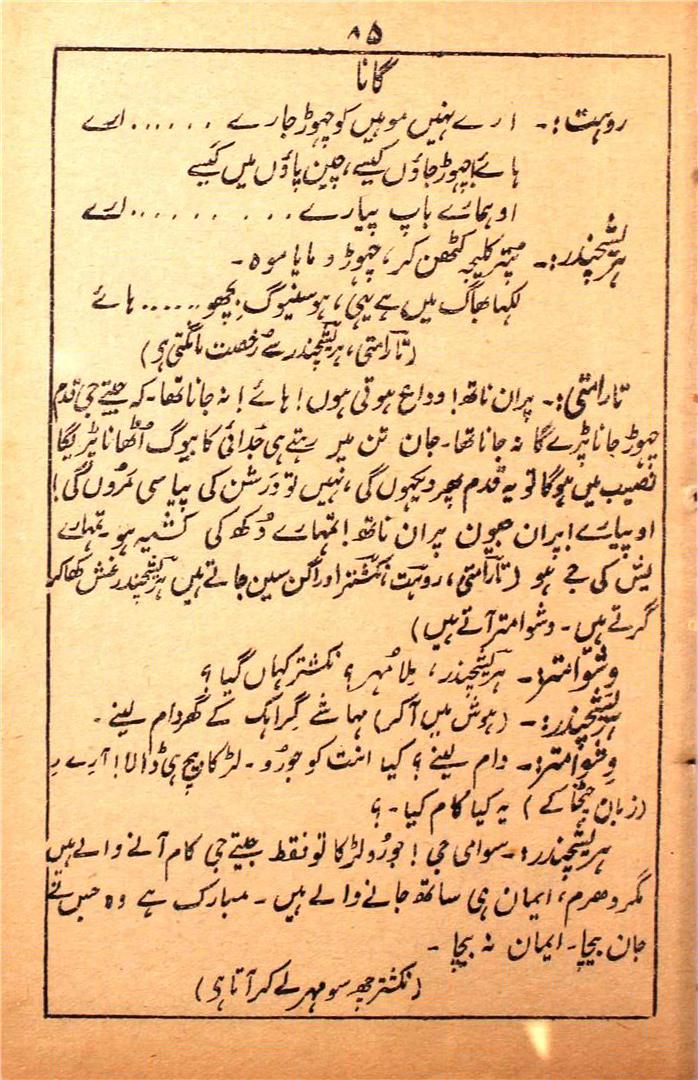 ۸۵
گانا
روہت:۔ ارے نہیں موہیں کو چھوڑ جارے ...... ارے
ہائے! چھوڑ جاؤں کیسے، چین پاؤں میں کیسے
او ہمارے باپ پیارے .......... ارے
ہریشچندر:۔ پتر کلیجہ کٹھن کر، چھوڑ و مایا موہ ۔
لکھا بھاگ میں ہے یہی، ہو سنیوگ بچھو ...... ہائے
(تارامتی، ہریشچندر سے رخصت مانگتی ہی)
تارامتی:۔ پران ناتھ! وداع ہوتی ہوں! ہائے! نہ جانا تھا۔ کہ جیتے جی قدم
چھوڑ جانا پڑے گا نہ جانا تھا۔ جان تن میں رہتے ہی جُدائی کا بیوگ اُٹھانا پڑیگا
نصیب میں ہوگا تو یہ قدم پھر دیکھوں گی، نہیں تو درشن کی پیاسی مَروں گی!
او پیارے! پران جیون پران ناتھ! تمہارے دُکھ کی کشیہ ہو۔ تمہارے
یش کی جے ہو (تارامتی، روہت نکشتر اور اگن سین جاتے ہیں ہریشچندر غش کھا کر
گرتے ہیں۔ وشوامتر آتے ہیں)
وشوامتر:۔ ہریشچندر، مِلا مُہر؟ نکشتر کہاں گیا؟
ہریشچندر:۔ (ہوش میں آکر) مہاشے گراہک کے گھر دام لینے ۔
وشوامتر:۔ دام لینے؟ کیا انت کو جورُو۔ لڑکا بیچ ہی ڈالا! آرے رے
(زبان چٹخا کے) یہ کیا کام کیا۔؟
ہریشچندر:۔ سوامی جی! جورُو لڑکا تو فقط جیتے جی کام آنے والے ہیں
مگر دھرم، ایمان ہی ساتھ جانے والے ہیں۔ مبارک ہے وہ جس نے
جان بیچا۔ ایمان نہ بیچا ۔
(نکشتر چھ سو مہر لے کر آتا ہی)